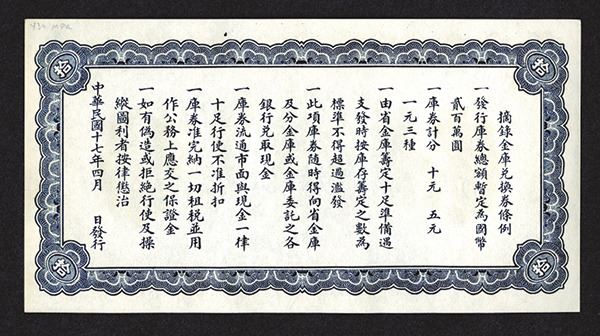 439 MPR
拾
拾
摘錄金庫兌換券條例
一發行庫券總額暫定為國幣
貳百萬圓
一庫券計分 十元 五元
一元三種
一由省金庫籌定十足準備遇
支發時按庫存籌定之數為
標準不得超過濫發
一此項庫券隨時得向省金庫
及分金庫或金庫委託之各
銀行兌取現金
一庫券流通市面與現金一律
十足行使不准折扣
一庫券准完納一切租稅並用
作公務上應交之保證金
一如有偽造或拒絕行使及操
縱圖利者按律懲治
中華民國十七年四月 日發行
拾
拾